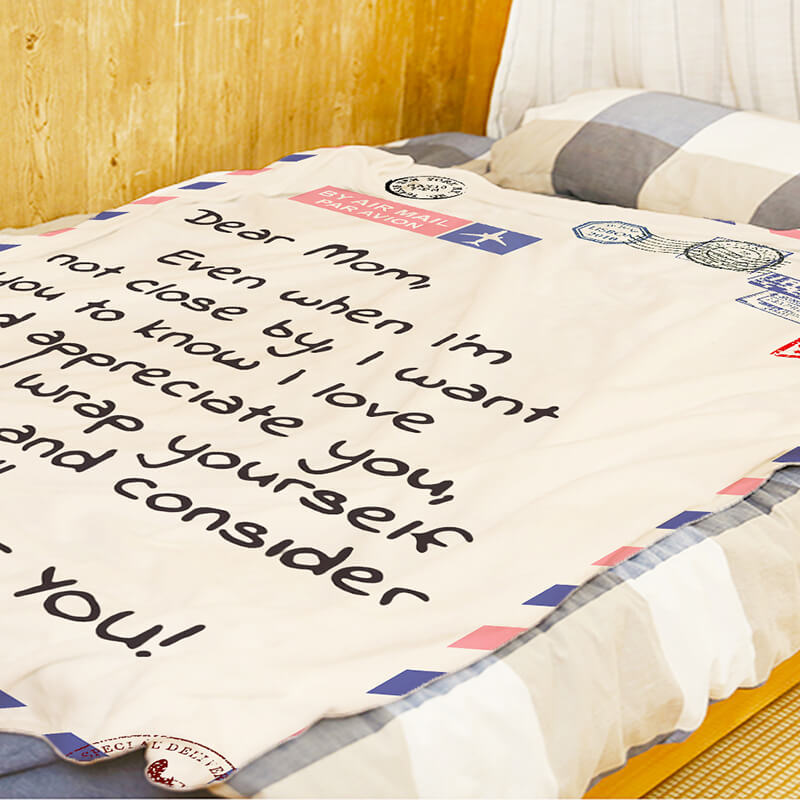 BY AIR MAIL
PAR AVION
LISBON
2016
Dear Mom,
Even when I'm
not close by, I want
you to know I love
appreciate you,
wrap yourself
and consider
you!
SPECIAL DELIVER